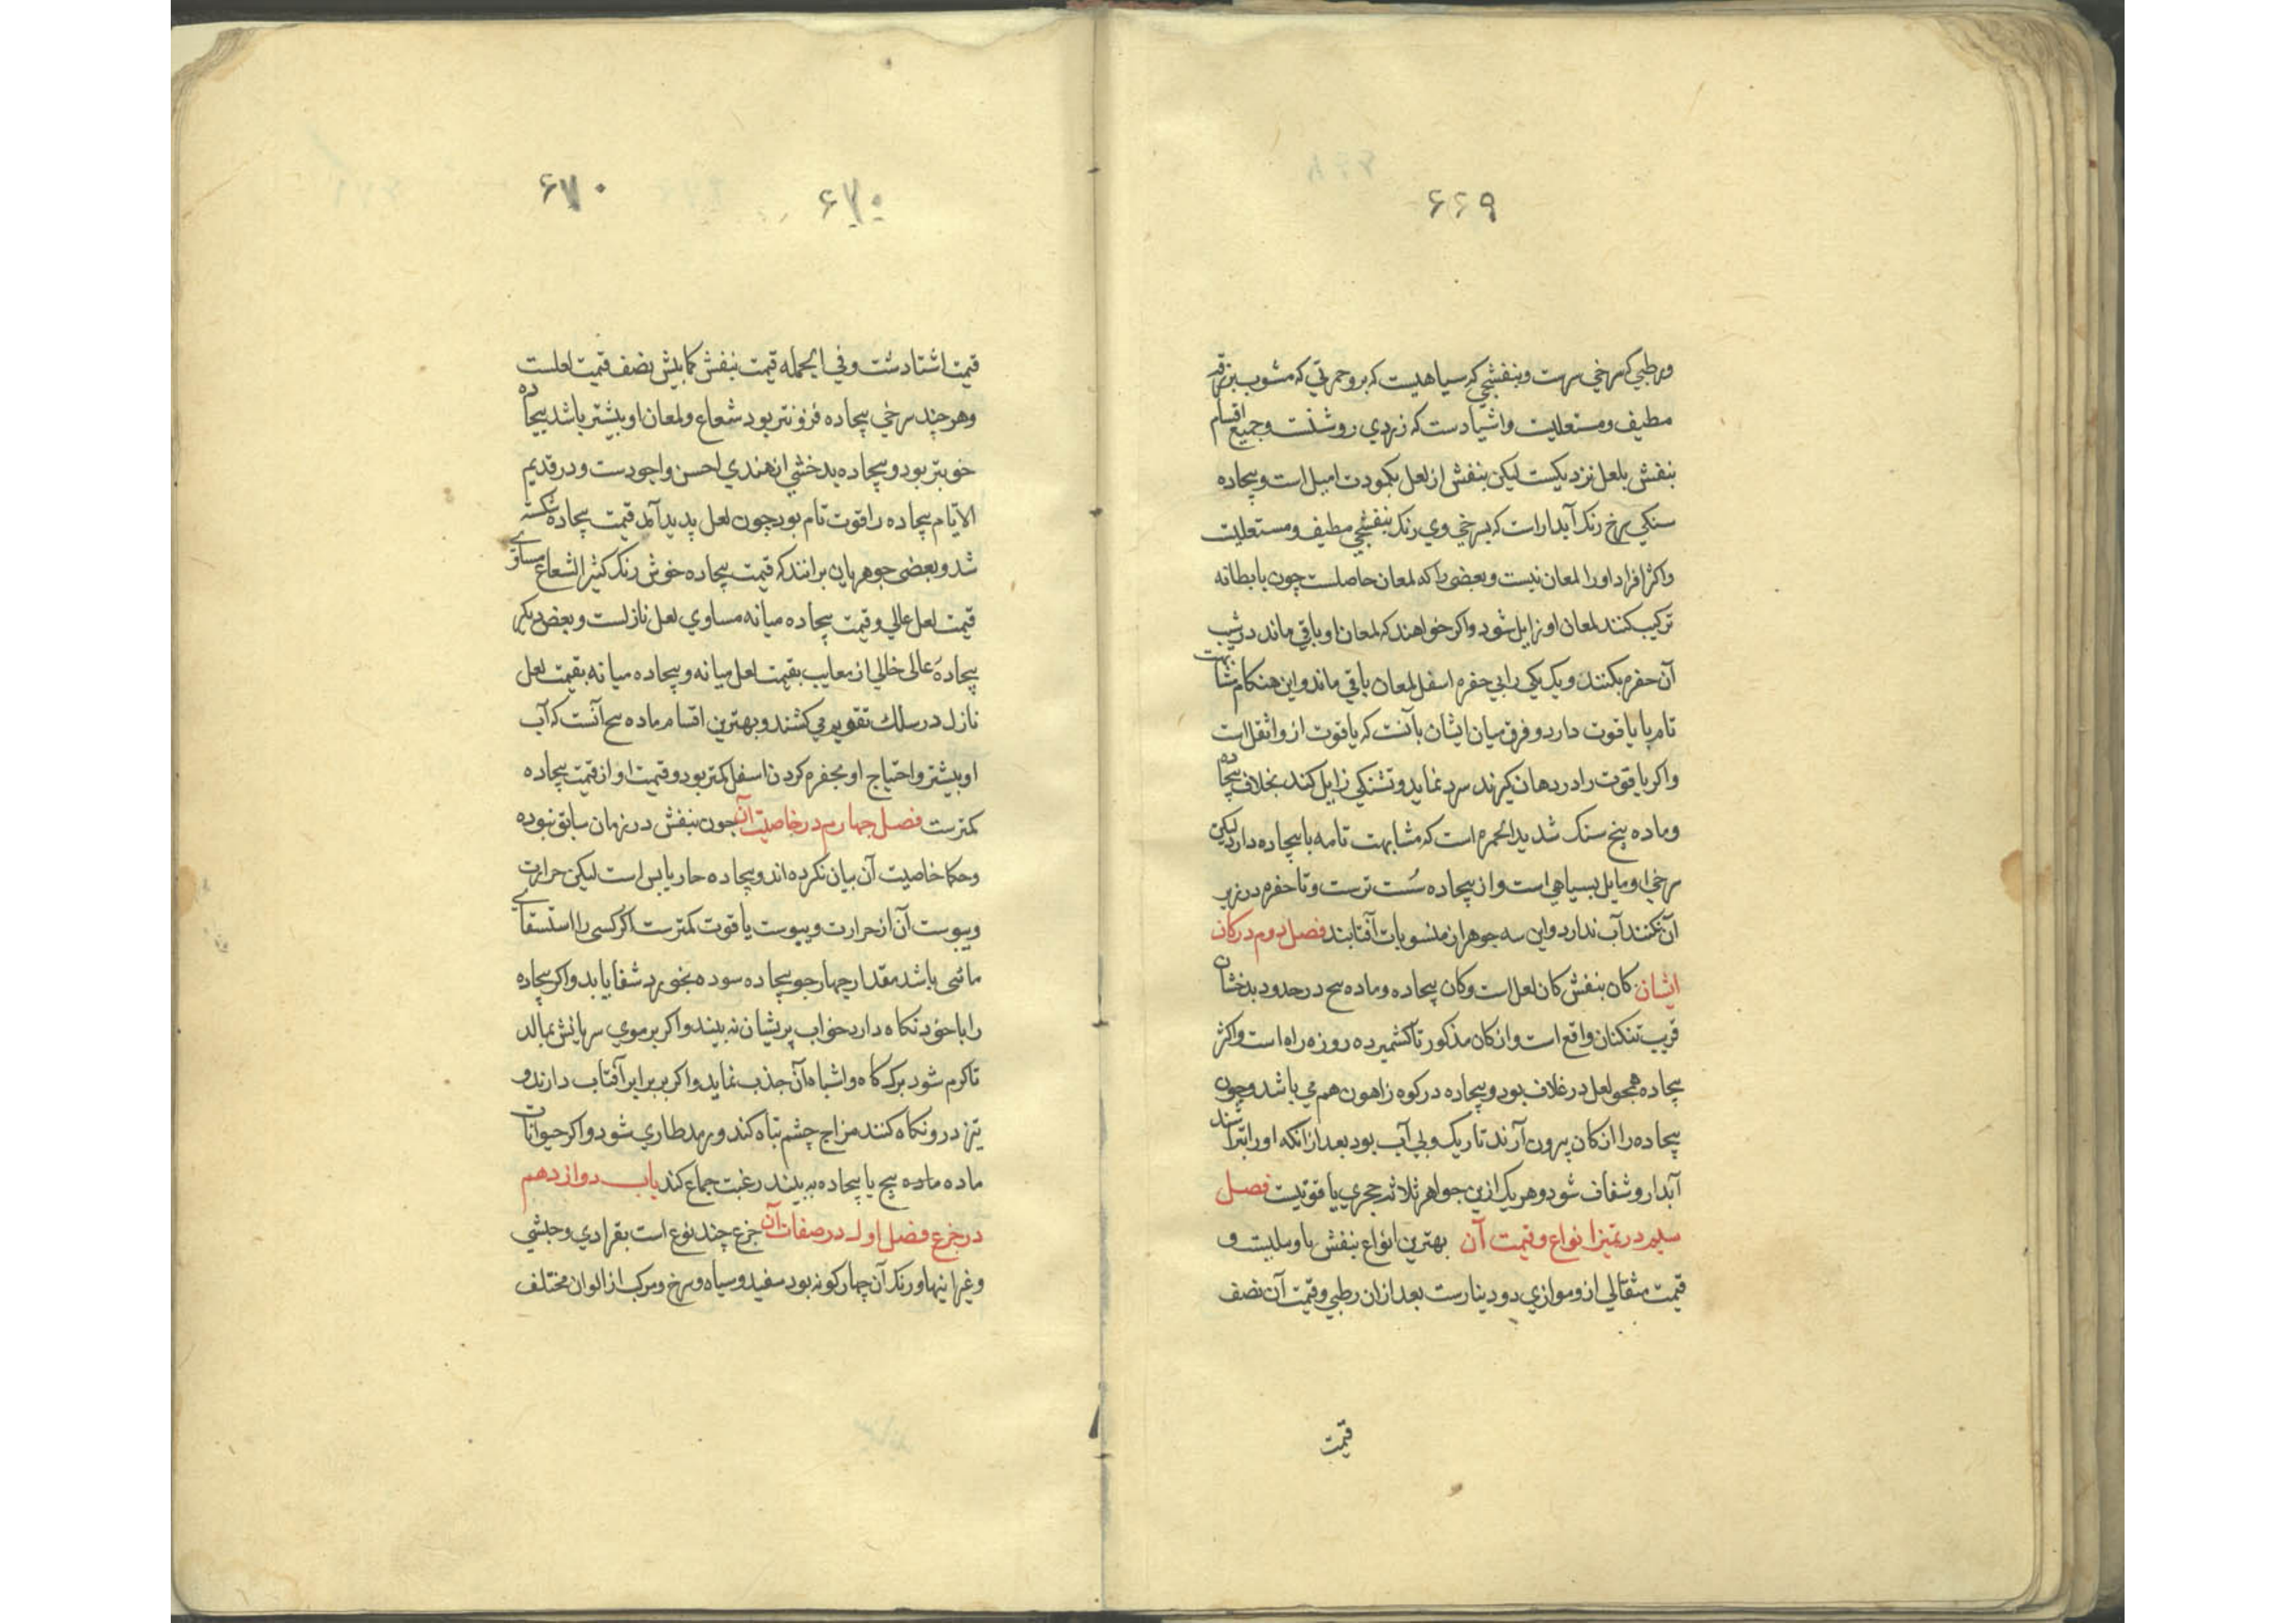 ۶۶۹
ورطبی که سرخی سرت وبنفشجی که سیاهیست که برو حمرتی که مشوب بزرقه
مطیف ومستعلیت واشتادست که زردی روشنت وجمیع اقسام
بنفش بلعل نزدیکست لیکن بنفش از لعل بکمودت امیل است وبیجاده
سنکی سرخ رنک آبدار است که بسرخی وی رنک بنفشجی مطیف ومستعلیت
واکثر افراد اورا لمعان نیست وبعضی را که لمعان حاصلست چون با بطانه
ترکیب کنند لمعان او زایل شود واکر خواهند که لمعان او باقی ماند در شیب
آن حفره بکنند ویک یکی رابی حفره اسفل لمعان باقی ماند واین هنکام مشابهت
تام با یاقوت دارد وفرق میان ایشان بآنست که یاقوت از و اثقل است
واکر یاقوت را در دهان کیرند سرد نماید وتشنکی زایل کند بخلاف بیجاده
وماده بنج سنک شدید الحمره است که مشابهت تامه با بیجاده دارد لیکن
سرخی او مایل بسیاهی است واز بیجاده سست ترست وتا حفره در زیر
آن نکنند آب ندارد واین سه جوهر از منسوبات آفتابند فصل دوم در کان
ایشان کان بنفش کان لعل است وکان بیجاده وماده بنج در حدود بدخشان
قریب تنکنان واقع است واز کان مذکور تا کشمیر ده روزه راه است واکثر
بیجاده همجو لعل در غلاف بود وبیجاده در کوه زاهون هم می باشد وچون
بیجاده را از کان بیرون آرند تاریک وبی آب بود بعد ازانکه اورا بتراشند
آبدار وشفاف شود وهر یک ازین جواهر ثلاثه حجری یاقوتیست فصل
سیم در تمیز انواع وقیمت آن بهترین انواع بنفش ماوملیست و
قیمت مثقالی ازو موازی دو دینارست بعد ازان رطبی وقیمت آن نصف
قیمت
۶۷۰
۶۷۰
قیمت اشتادست وفی الجمله قیمت بنفش کمابیش نصف قیمت لعلست
وهر چند سرخی بیجاده فزونتر بود شعاع ولمعان او بیشتر باشد بیجاده
خوبتر بود وبیجاده بدخشی از هندی احسن واجودست ودر قدیم
الایام بیجاده را قوت تام بود چون لعل پدید آمد قیمت بیجاده شکسته
شد وبعضی جوهریان برانند که قیمت بیجاده خوش رنک کثیر الشعاع مساوی
قیمت لعل عالی وقیمت بیجاده میانه مساوی لعل نازلست وبعضی دیکر
بیجادۀ عالی خالی از معایب بقیمت لعل میانه وبیجاده میانه بقیمت لعل
نازل در سلک تقویم می کشند وبهترین اقسام ماده بنج آنست که آب
او بیشتر واحتیاج او بحفره کردن اسفل کمتر بود وقیمت او از قیمت بیجاده
کمترست فصل چهارم در خاصیت آن چون بنفش در زمان سابق نبوده
وحکما خاصیت آن بیان نکرده اند وبیجاده حار یابس است لیکن حرارت
ویبوست آن از حرارت ویبوست یاقوت کمترست اکر کسی را استسقای
مائی باشد مقدار چهار جو بیجاده سوده بخورد شفا یابد واکر بیجاده
را با خود نکاه دارد خواب پریشان نه بیند واکر بر موی سر یا ریش بمالد
تا کرم شود برک کاه واشباه آن جذب نماید واکر در برابر آفتاب دارند و
تیز درو نکاه کنند مزاج چشم تباه کند ورمد طاری شود واکر حیوانات
ماده ماده بنج یا بیجاده به بیند رغبت جماع کند باب دوازدهم
در جزع فصل اول در صفات آن جزع چند نوع است بقرادی وحبشی
وغیر اینها ورنک آن چهار کونه بود سفید وسیاه وسرخ ومرکب از الوان مختلف